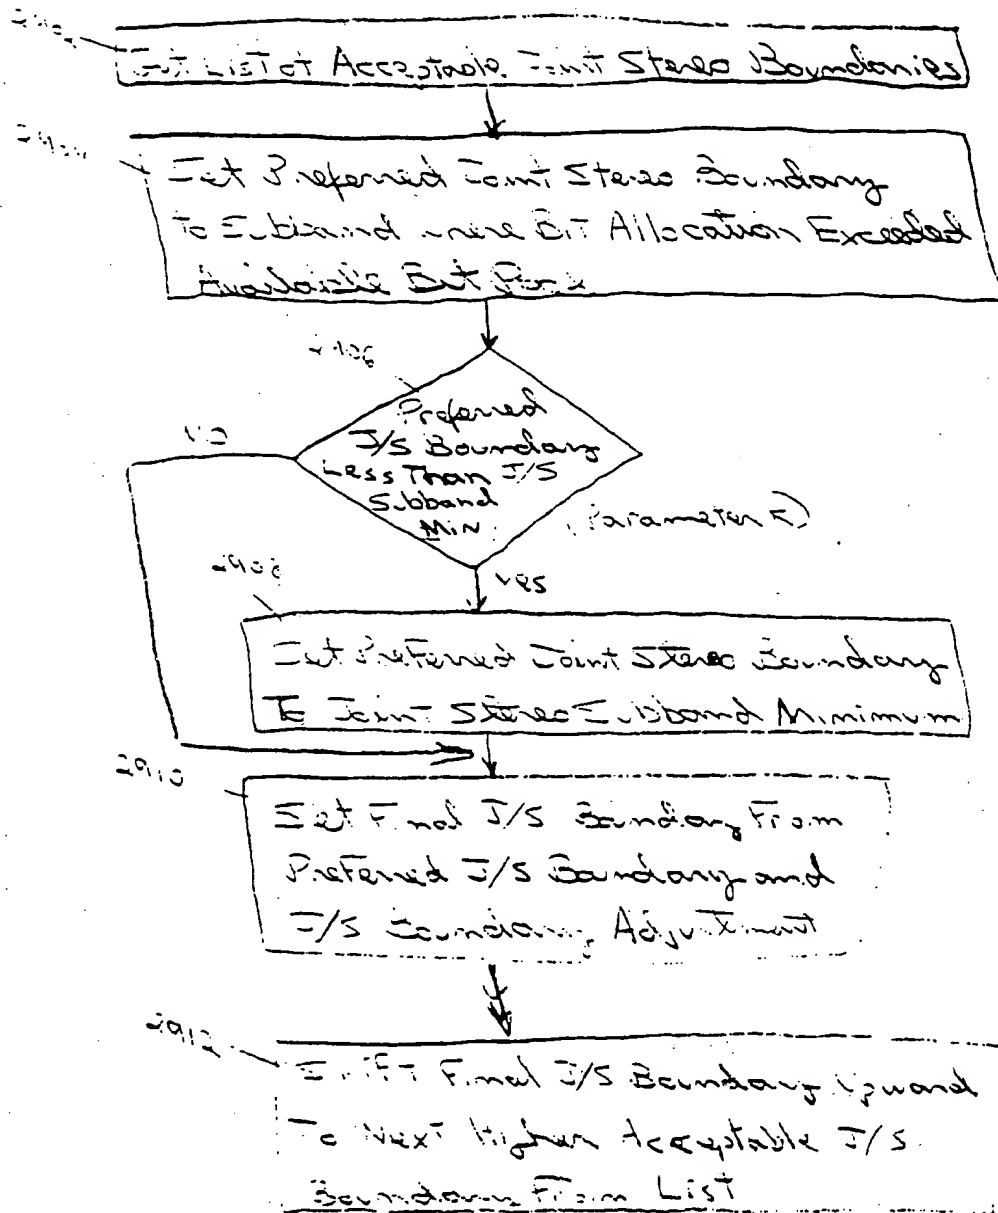 List of Acceptable Joint Stereo Boundaries
Set Preferred Joint Stereo Boundary
To Subband where Bit Allocation Exceeded
Available Bit Pool
2906
Preferred
J/S Boundary
Less Than J/S
Subband
Min
NO
(Parameter
2908
Yes
Set Preferred Joint Stereo Boundary
To Joint Stereo Subband Minimum
2910
Set Final J/S Boundary From
Preferred J/S Boundary and
J/S Boundary Adjustment
2912
Shift Final J/S Boundary Upward
To Next Higher Acceptable J/S
Boundary From List